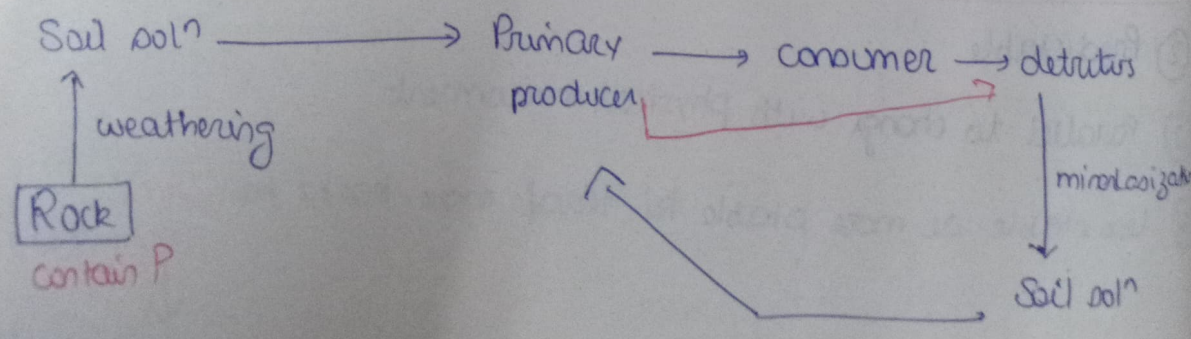 Soil solⁿ
Primary
producer
consumer
detritus
weathering
Rock
contain P
Soil solⁿ